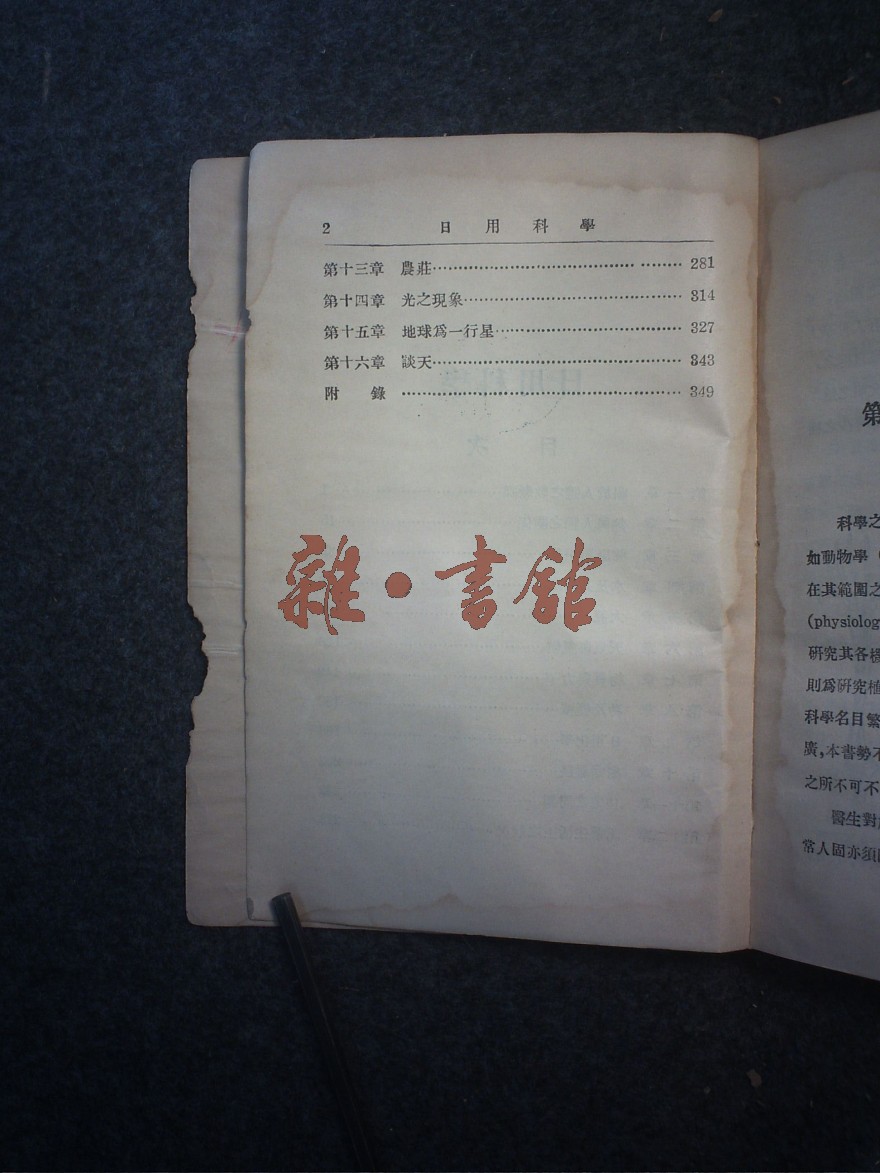 2 日用科學
第十三章 農莊 281
第十四章 光之現象 314
第十五章 地球爲一行星 327
第十六章 談天 343
附錄 349
雜·書館
第
科學之
如動物學（
在其範圍之
(physiology
研究其各機
則爲研究植
科學名目繁
廣,本書勢不
之所不可不
醫生對
常人固亦須